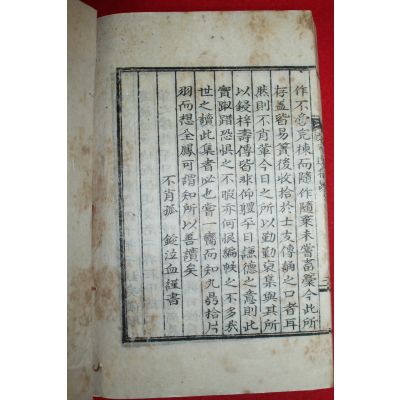 作不啻充棟而隨作隨棄未嘗畜藁今此所
存盖皆易簀後收拾於士友傳誦之口者耳
然則不肖輩今日之所以勤勤裒集與其所
以鋟梓壽傳皆非仰體平日謙德之意則此
實踧踖恐惧之不暇亦何恨編帙之不多哉
世之讀此集者必也嘗一臠而知九鼎拾片
羽而想全鳳可謂知所善讀矣
不肖孤 鋌泣血謹書